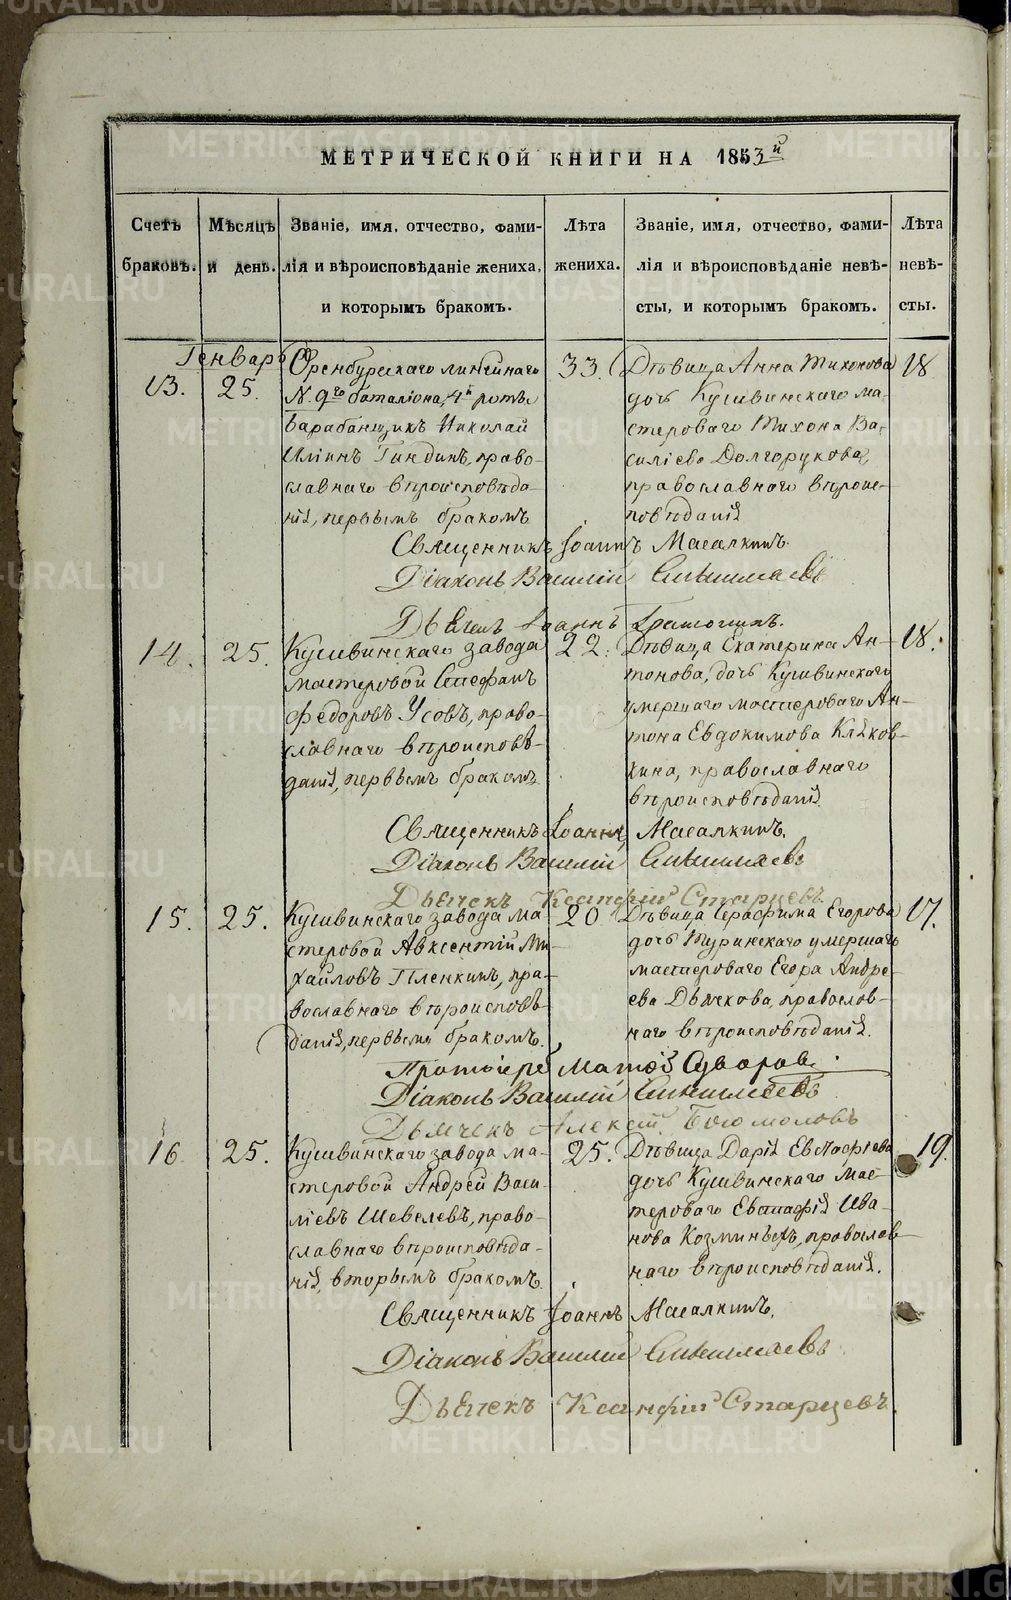 МЕТРИЧЕСКОЙ КНИГИ НА 1853й
Счетъ браковъ.
Мѣсяцъ и день.
Званіе, имя, отчество, фами-
лія и вѣроисповѣданіе жениха,
и которымъ бракомъ.
Лѣта жениха.
Званіе, имя, отчество, фами-
лія и вѣроисповѣданіе невѣ-
сты, и которымъ бракомъ.
Лѣта невѣ-
сты.
Генварь
13.
25.
Оренбургскаго линѣйнаго
N. 9го баталіона, 4й роты
барабанщикъ Николай
Ильинъ Гиндинъ, право-
славнаго вѣроисповѣда-
нія, первымъ бракомъ
33.
Дѣвица Анна Тихонова
дочь Кушвинскаго ма-
стероваго Тихона Ва-
силіева Долгорукова,
православнаго вѣроис-
повѣданія
18
Священникъ Іоаннъ Масалкинъ.
Діаконъ Василій
Дьячекъ Іоаннъ
14.
25.
Кушвинскаго завода
мастеровой Стефанъ
Федоровъ Усовъ, право-
славнаго вѣроисповѣ-
данія, первымъ бракомъ
22.
Дѣвица Екатерина Ан-
тонова, дочь Кушвинскаго
умершаго мастероваго Ан-
тона Евдокимова Кляков-
кина, православнаго
вѣроисповѣданія
18.
Священникъ Іоаннъ Масалкинъ.
Діаконъ Василій
Дьячекъ Ксанфій Старцевъ.
15.
25.
Кушвинскаго завода ма-
стеровой Авксентій Ми-
хайловъ Пленкинъ, пра-
вославнаго вѣроисповѣ-
данія, первымъ бракомъ.
20
Дѣвица Серафима Егорова
дочь Туринскаго умершаго
мастероваго Егора Андре-
ева Дьячкова, православ-
наго вѣроисповѣданія.
17.
Протоіерей Матѳій Суворовъ.
Діаконъ Василій
Дьячекъ Алексій Богомоловъ
16.
25.
Кушвинскаго завода ма-
стеровой Андрей Васи-
ліевъ Шевелевъ, право-
славнаго вѣроисповѣда-
нія, вторымъ бракомъ.
25.
Дѣвица Дарія Евстафіева
дочь Кушвинскаго мас-
тероваго Евстафія Ива-
нова Козминыхъ, православ-
наго вѣроисповѣданія.
19.
Священникъ Іоаннъ Масалкинъ.
Діаконъ Василій
Дьячекъ Ксанфій Старцевъ.
METRIKI.GASO-URAL.RU